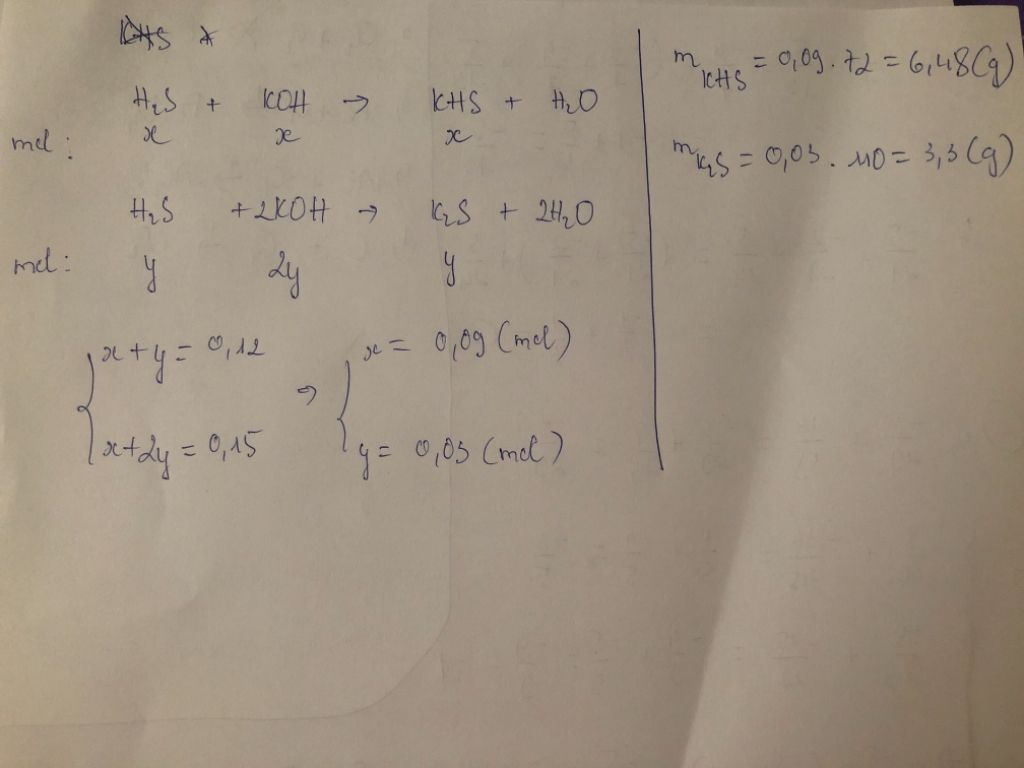 H₂S + KOH → KHS + H₂O
mol: x x x
H₂S + 2KOH → K₂S + 2H₂O
mol: y 2y y
{ x + y = 0,12 → { x = 0,09 (mol)
x + 2y = 0,15 y = 0,03 (mol)
m KHS = 0,09 . 72 = 6,48 (g)
m K₂S = 0,03 . 110 = 3,3 (g)